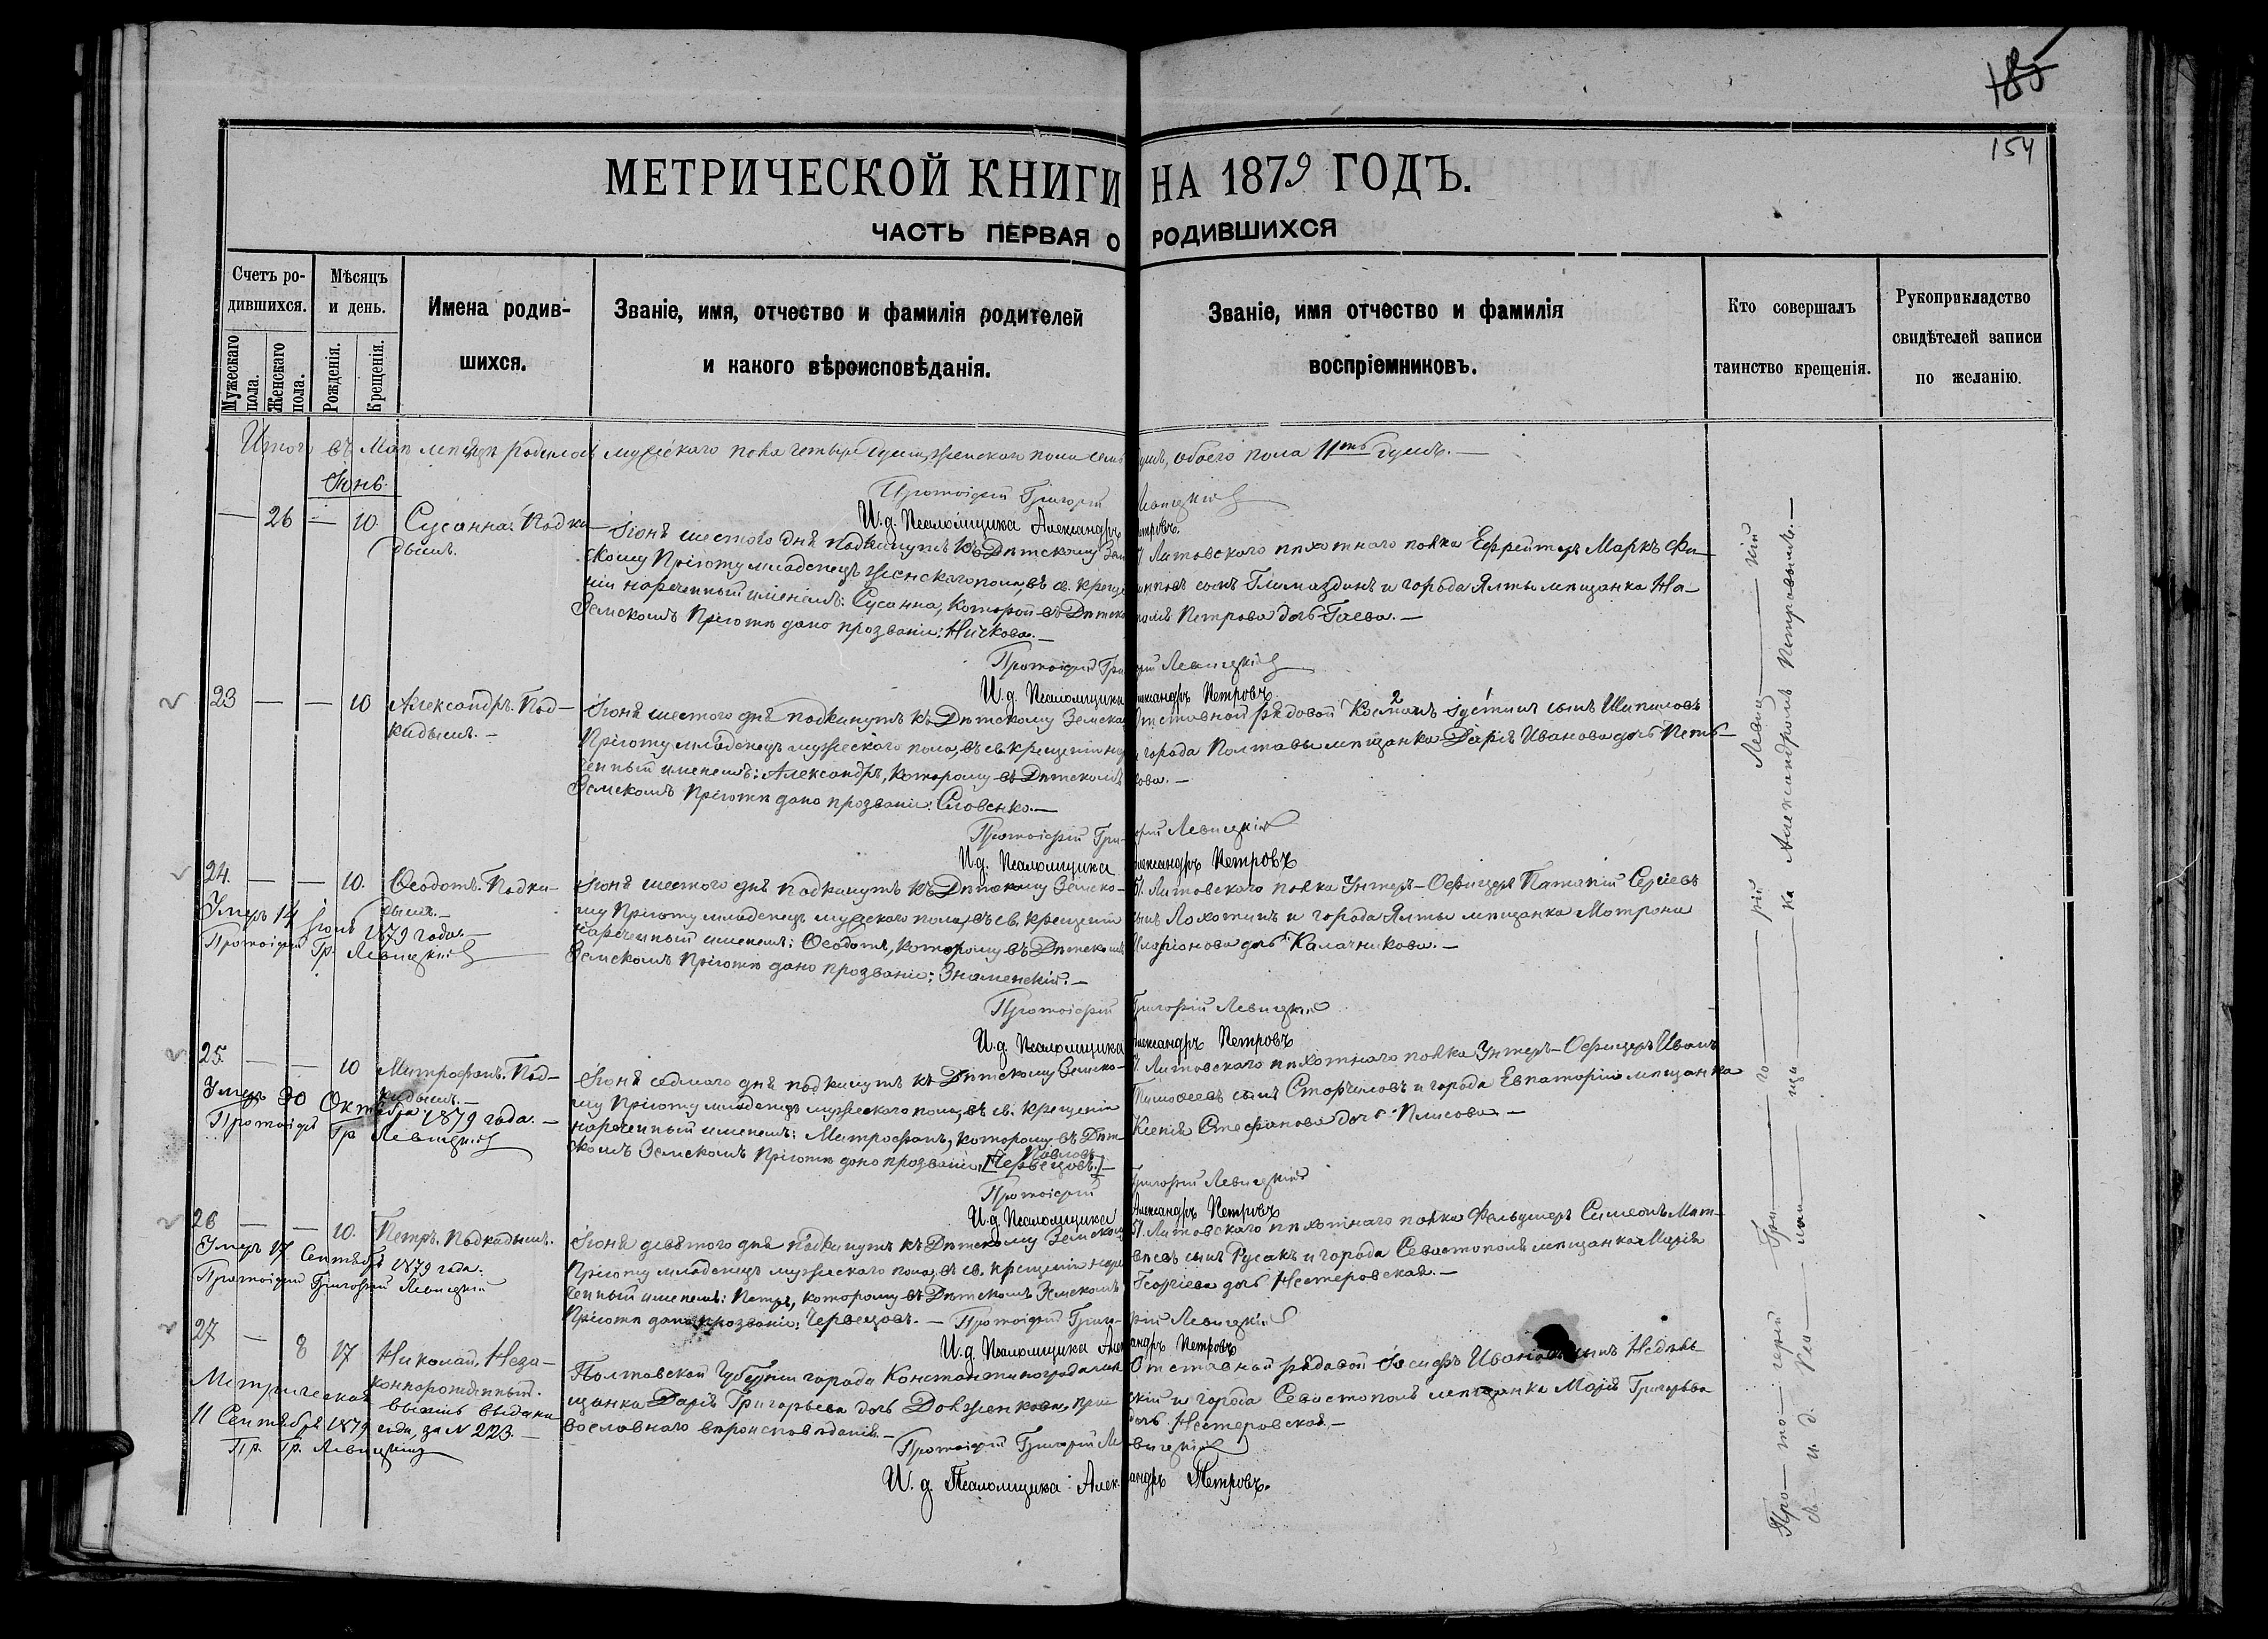 185
154
МЕТРИЧЕСКОЙ КНИГИ НА 1879 ГОДЪ.
ЧАСТЬ ПЕРВАЯ О РОДИВШИХСЯ
Счетъ ро-
дившихся.
Мужескаго пола.
Женскаго пола.
Мѣсяцъ
и день.
Рожденія.
Крещенія.
Имена родив-
шихся.
Званіе, имя, отчество и фамилія родителей
и какого вѣроисповѣданія.
Званіе, имя отчество и фамилія
воспріемниковъ.
Кто совершалъ
таинство крещенія.
Рукоприкладство
свидѣтелей записи
по желанію.
Итого въ Маѣ мѣсяцѣ родилось мужескаго пола четыре души, женскаго пола семь душъ, обоего пола 11ть душъ. —
Іюнь.
Протоіерей Григорій Левицкій
И. д. Псаломщика Александръ Петровъ.
— 26 — 10 Сусанна. Подки-
дышъ.
Іюня шестого дня подкинутъ къ Дѣтскому Зем-
скому Пріюту младенецъ женскаго пола, въ св. креще-
ніи нареченный именемъ: Сусанна, которой въ Дѣтско
Земскомъ Пріютѣ дано прозваніе: Ничкова. —
51 Литовского пѣхотнаго полка Ефрейторъ Маркъ Фи-
липповъ сынъ Глимаздинъ и города Ялты мѣщанка На-
талія Петрова дочь Гаева. —
Протоіерей Григорій Левицкій
И. д. Псаломщика Александръ Петровъ
23 — — 10 Александръ. Под-
кидышъ. —
Іюня шестого дня подкинутъ къ Дѣтскому Земском
Пріюту младенецъ мужескаго пола, въ св. крещеніи наре
ченный именемъ: Александръ, которому въ Дѣтскомъ
Земскомъ Пріютѣ дано прозваніе: Словенко. —
Отставной рядовой Косма Іустинъ сынъ Шипиловъ
и города Полтавы мѣщанка Дарія Иванова дочь Петь-
кова. —
Протоіерей Григорій Левицкій
И. д. Псаломщика Александръ Петровъ
24. — — 10. Ѳеодотъ. Подки-
дышъ. —
Умеръ 14 Іюня 1879 года. —
Протоіерей Гр. Левицкій
Іюня шестого дня подкинутъ къ Дѣтскому Земско-
му Пріюту младенецъ мужескаго пола, въ св. крещеніи
нареченный именемъ: Ѳеодотъ, которому въ Дѣтскомъ
Земскомъ Пріютѣ дано прозваніе: Знаменскій. —
51. Литовского полка Унтеръ-Офицеръ Патапій Сергіевъ
сынъ Лохотинъ и города Ялты мѣщанка Матрона
Иларіонова дочь Калачникова. —
Протоіерей Григорій Левицкій
И. д. Псаломщика Александръ Петровъ
25. — — 10 Митрофанъ. Под-
кидышъ. —
Умеръ 30 Октября 1879 года. —
Протоіерей Гр. Левицкій
Іюня седмаго дня подкинутъ къ Дѣтскому Земско-
му Пріюту младенецъ мужескаго пола, въ св. крещеніи
нареченный именемъ: Митрофанъ, которому въ Дѣт-
скомъ Земскомъ Пріютѣ дано прозваніе: [Червецовъ.] —
Павловъ
51 Литовского пѣхотнаго полка Унтеръ-Офицеръ Иванъ
Тимоѳеевъ сынъ Сторчиловъ и города Евпаторіи мѣщанка
Ксенія Стефанова дочь Плисова. —
Протоіерей Григорій Левицкій
И. д. Псаломщика Александръ Петровъ
26 — — 10. Петръ. Подкидышъ.
Умеръ 17 Сентября 1879 года.
Протоіерей Григорій Левицкій
Іюня девятого дня подкинутъ къ Дѣтскому Земскому
Пріюту младенецъ мужескаго пола, въ св. крещеніи наре
ченный именемъ: Петръ, которому въ Дѣтскомъ Земскомъ
Пріютѣ дано прозваніе: Червецовъ. —
51. Литовского пѣхотнаго полка Фельдшеръ Симеонъ Мат-
вѣевъ сынъ Русакъ и города Севастополя мѣщанка Марія
Георгіева дочь Нестеровская. —
Протоіерей Григорій Левицкій
И. д. Псаломщика Александръ Петровъ
27 — 8 17 Николай. Неза-
коннорожденный.
Метрическая выпись выдана
11 Сентября 1879 года, за N 223. —
Пр. Гр. Левицкій
Полтавской Губерніи города Константинограда мѣ-
щанка Дарія Григорьева дочь Довженкова, пра-
вославнаго вѣроисповѣданія. —
Отставной рядовой Іосифъ Ивановъ сынъ
и города Севастополя мѣщанка Марія Григорьева
дочь Нестеровская. —
Протоіерей Григорій Левицкій
И. д. Псаломщика Александръ Петровъ.
Про — то — іерей — Гри — го — рій — Левиц — кій
съ и. д. Пса — лом — щи — ка Александромъ Петровымъ. —